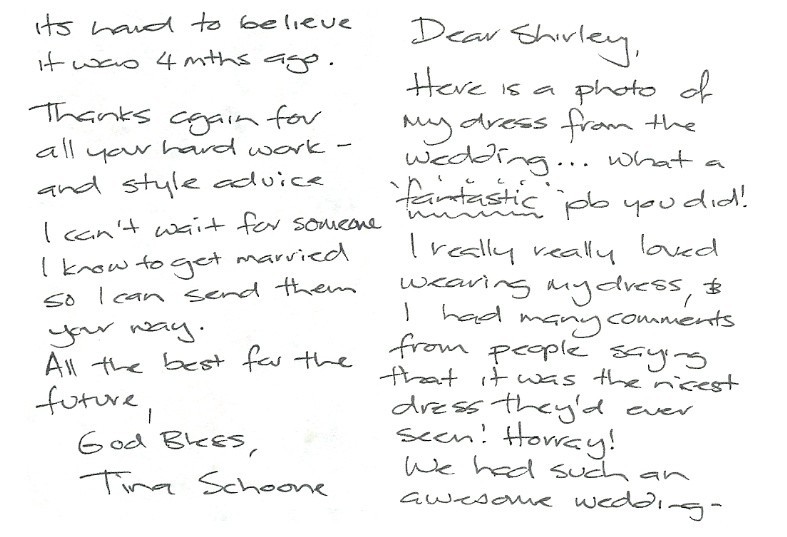 Dear Shirley,
Here is a photo of
my dress from the
wedding... what a
"fantastic" job you did!
I really really loved
wearing my dress, &
I had many comments
from people saying
that it was the nicest
dress they'd ever
seen! Horray!
We had such an
awesome wedding-
its hard to believe
it was 4 mths ago.
Thanks again for
all your hard work -
and style advice
I can't wait for someone
I know to get married
so I can send them
your way.
All the best for the
future,
God Bless,
Tina Schoone